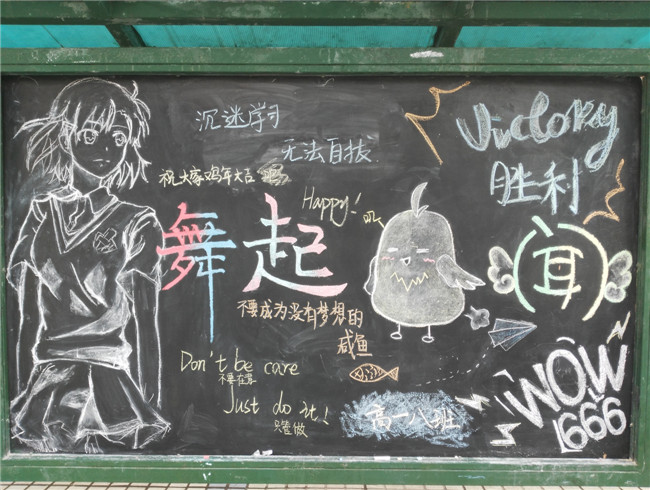 沉迷学习
无法自拔
祝大家鸡年大吉
Happy!
舞起
不要成为没有梦想的
咸鱼
Don't be care
不要在意
Just do it!
只管做
高一八班
Victory
胜利
WOW
666